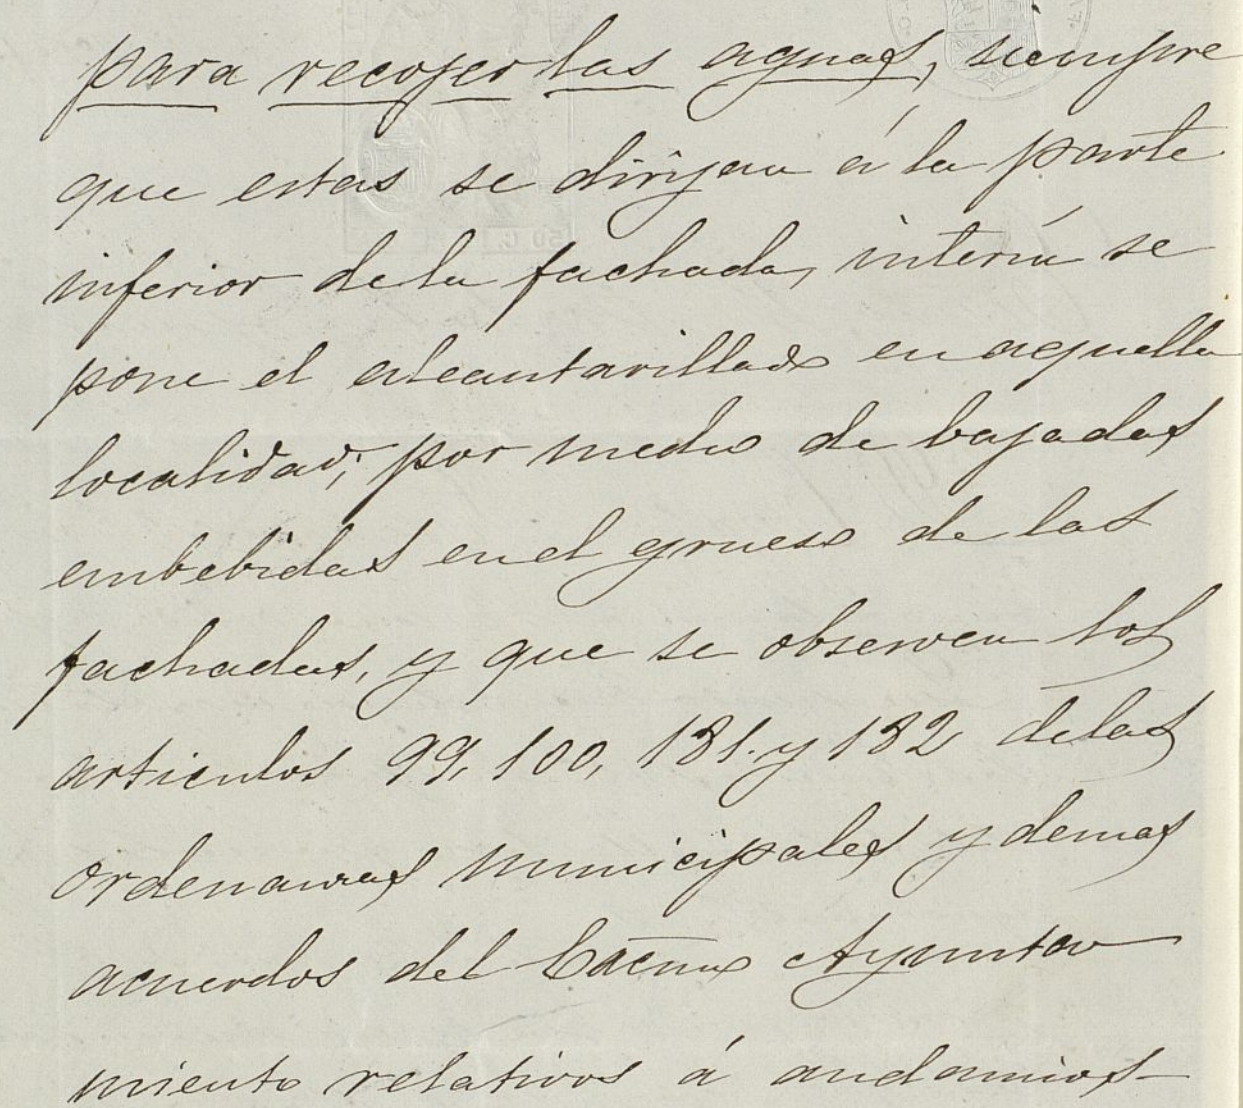 para recojer las aguas, siempre
que estas se dirijan á la parte
inferior de la fachada, interín se
pone el alcantarillado en aquella
localidad; por medio de bajadas
embebidas en el grueso de las
fachadas, y que se observen los
articulos 99, 100, 181. y 182 de las
ordenanzas municipales y demas
acuerdos del Excmo Ayunta
miento relativos á andamios